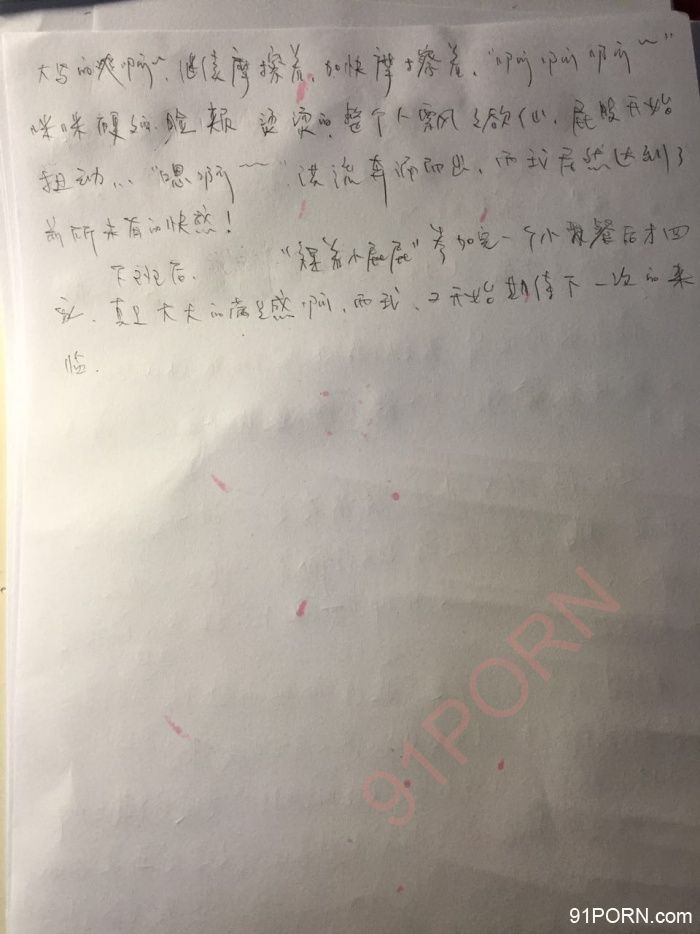 大写的爽啊~，继续摩擦着，加快摩擦着，“啊啊啊~”
咪咪硬了，脸颊烫烫的，整个人飘飘欲仙，屁股开始
扭动…“嗯啊~~”洪流奔涌而出，而我居然达到了
前所未有的快感！
下班后，“裸着小屁屁”参加完一个小聚餐后才回
家，真是大大的满足感啊，而我，又开始期待下一次的来
临.
91PORN
91PORN.com